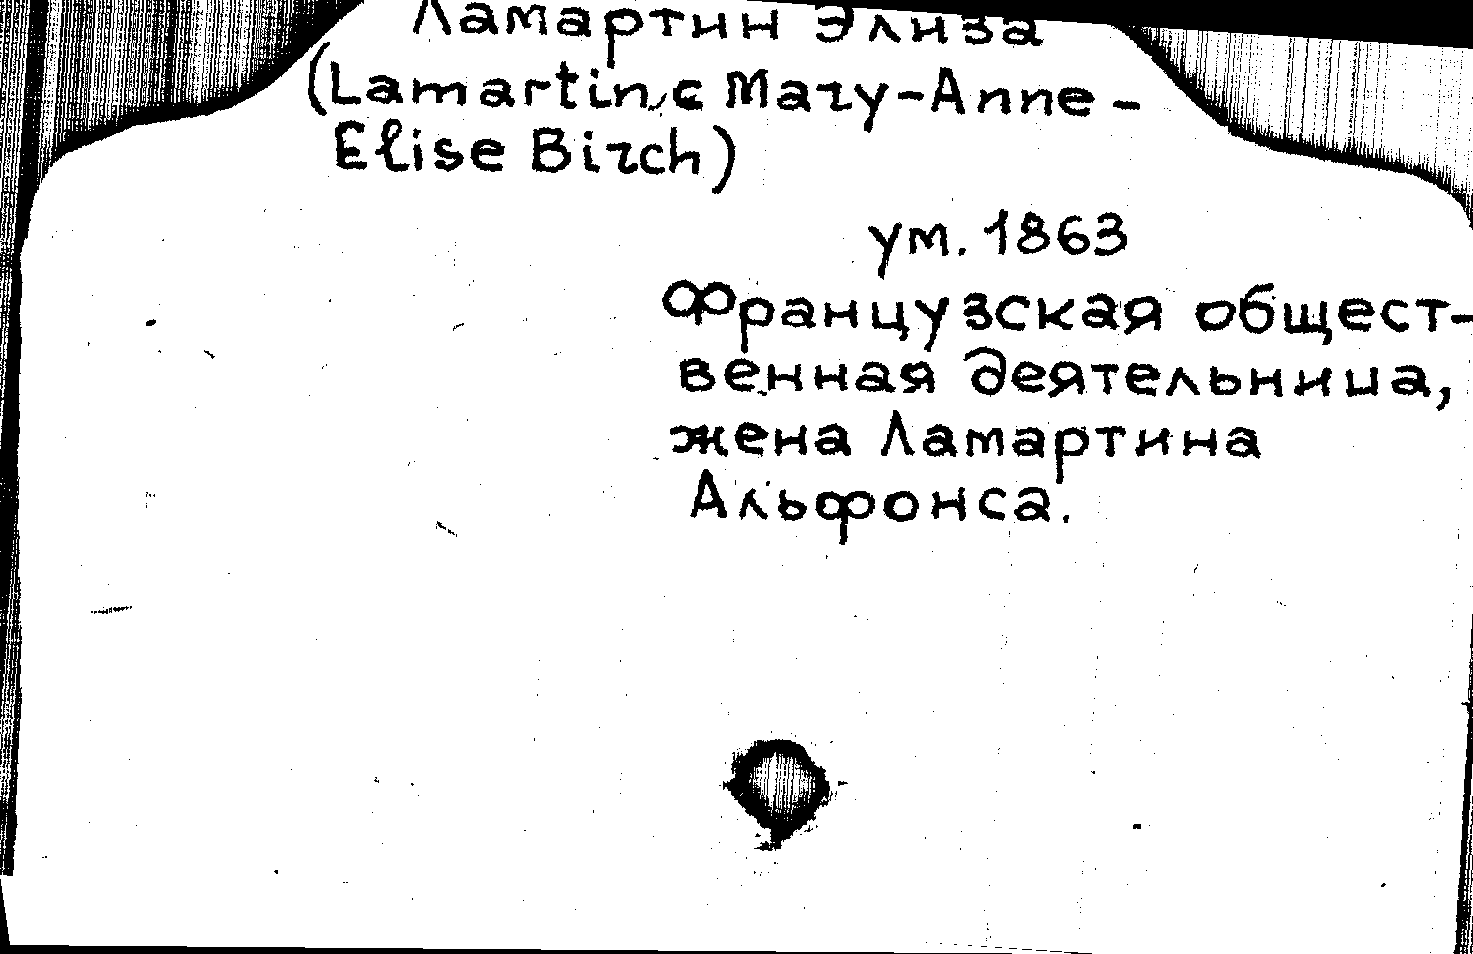 Ламартин Элиза
(Lamartine Mary-Anne-
Elise Birch)
ум. 1863
Французская общест-
венная деятельница,
жена Ламартина
Альфонса.